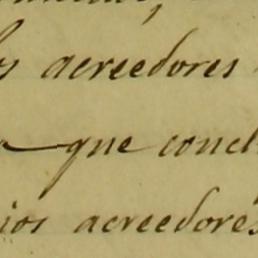 os acreedores
a que concl
ios acreedores